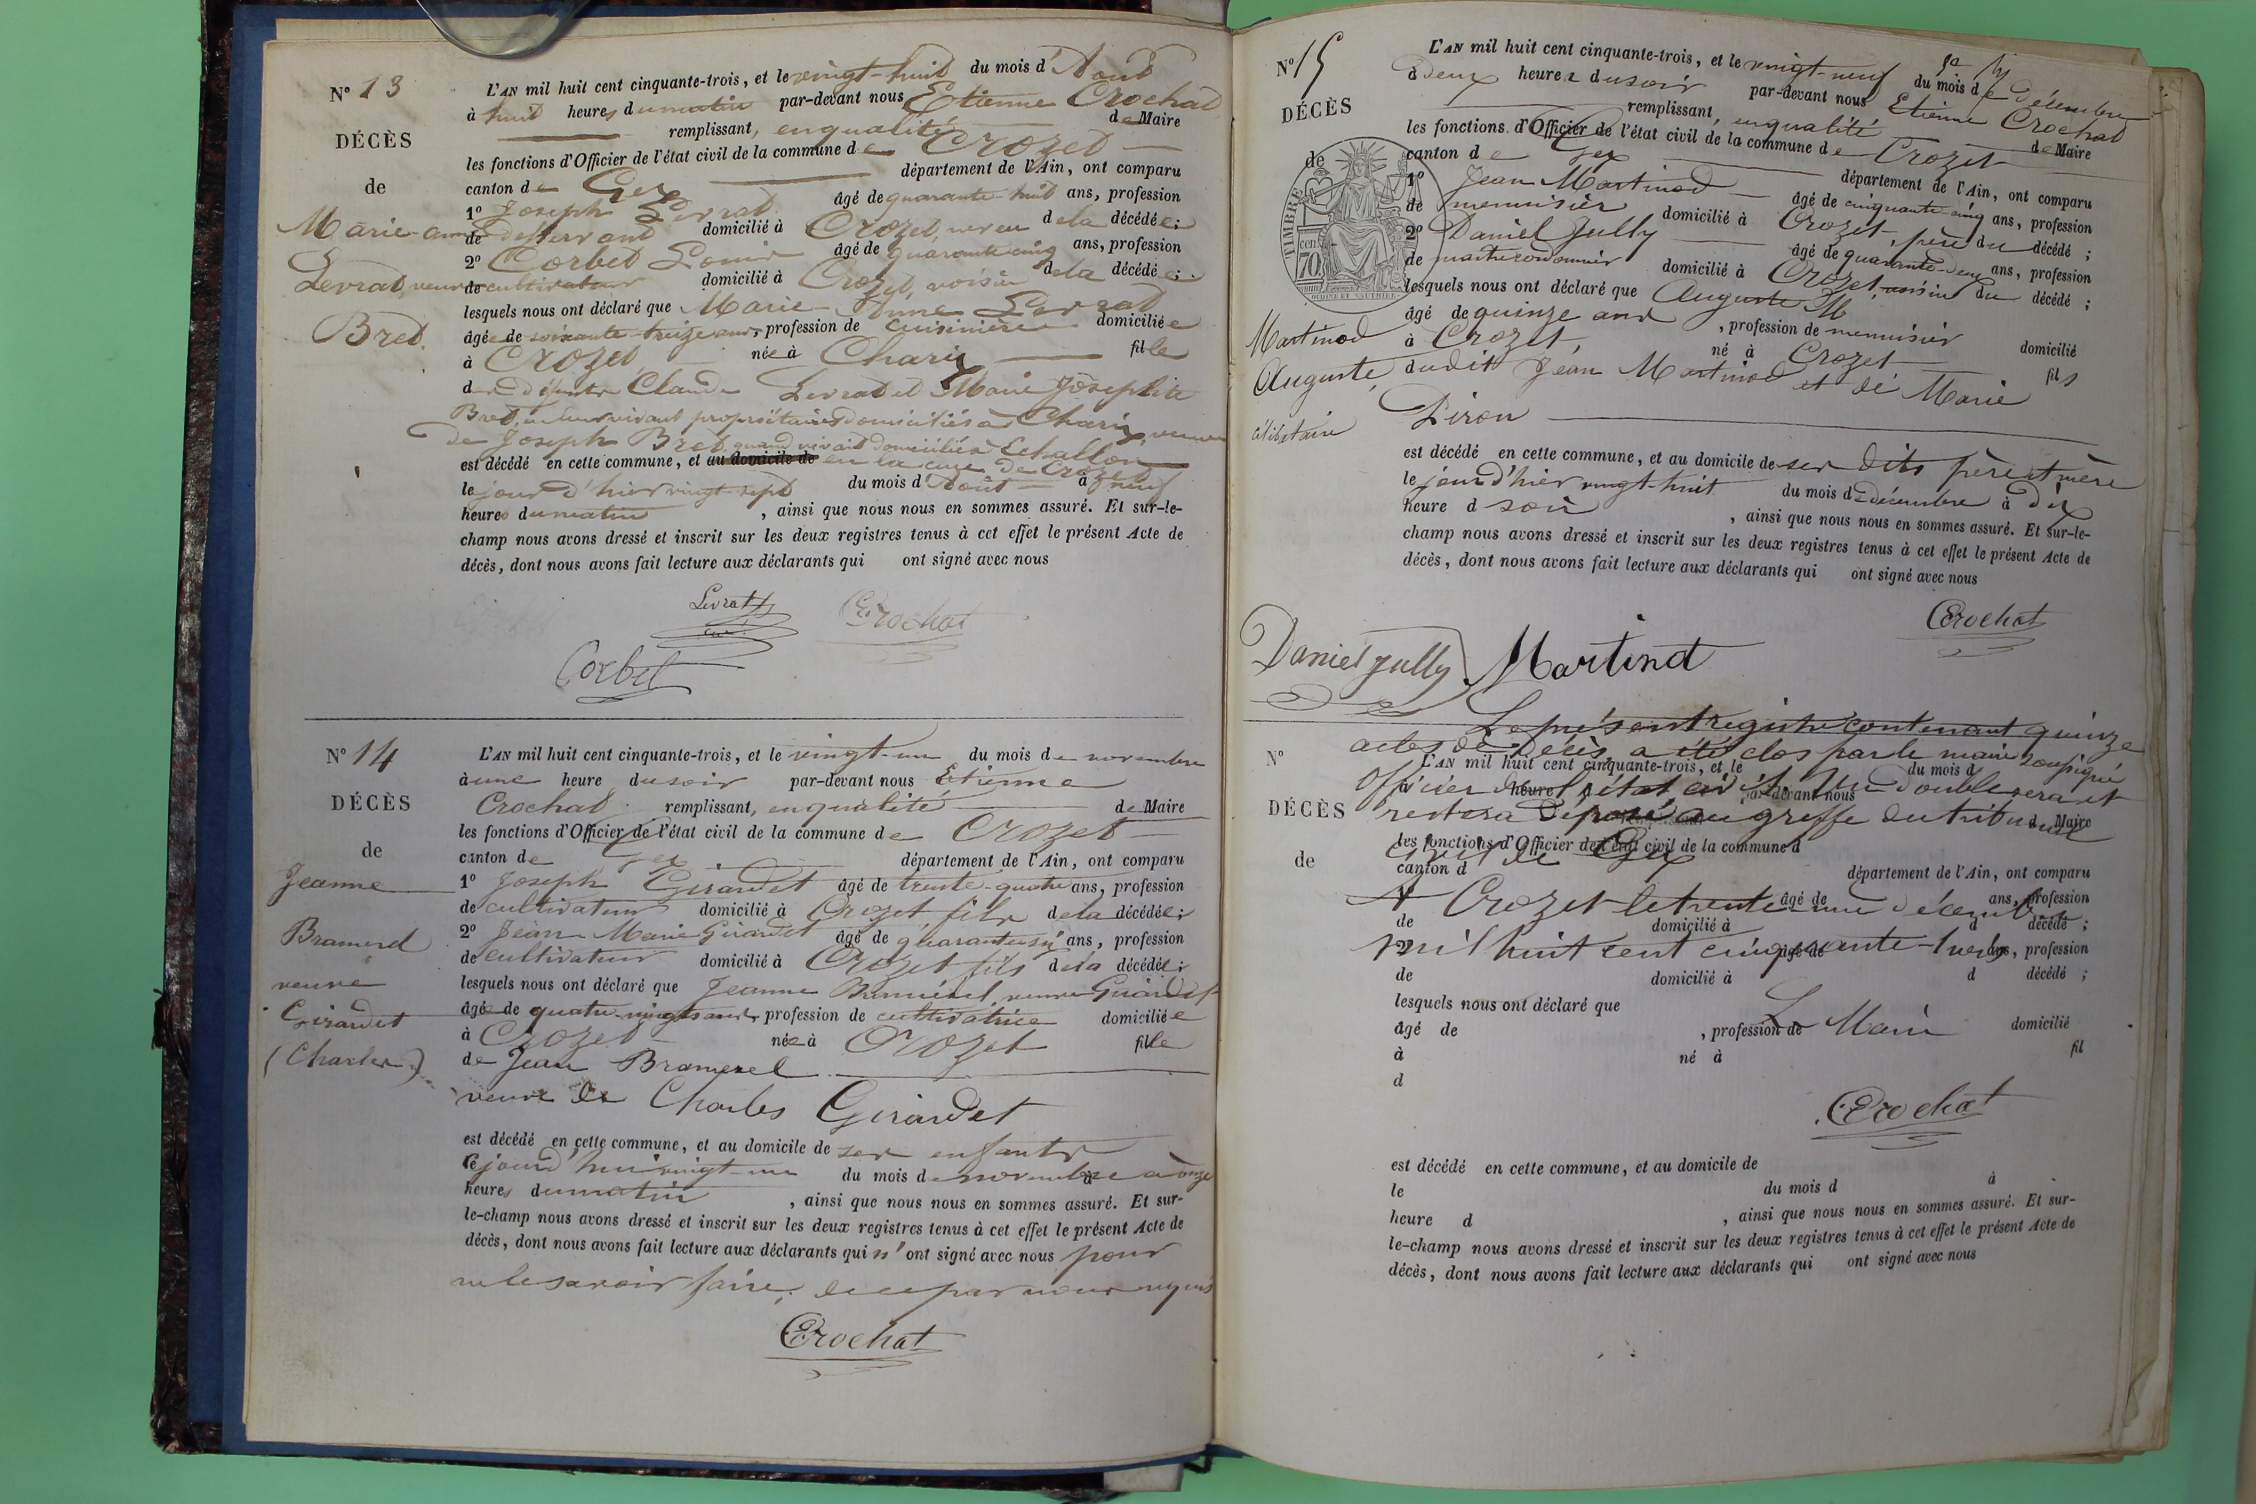 N° 13
DÉCÈS
de
Marie-anne
Levrat, veuve
Bret.
L'AN mil huit cent cinquante-trois, et le vingt-huit du mois d'Août
à huit heures du matin par-devant nous Etienne Crochat
remplissant, en qualité de Maire
les fonctions d'Officier de l'état civil de la commune de Crozet
canton de Gex département de l'Ain, ont comparu
1° Joseph Levrat âgé de quarante-huit ans, profession
de desservant domicilié à Crozet, neveu de la décédée;
2° Corbet Louis âgé de quarante cinq ans, profession
de cultivateur domicilié à Crozet, voisin de la décédée;
lesquels nous ont déclaré que Marie-Anne Levrat
âgée de soixante-treize ans, profession de cuisinière domiciliée
à Crozet, née à Charix fille
de défunts Claude Levrat et Marie Josephte
Bret, en leur vivant propriétaires domiciliés à Charix, veuve
de Joseph Bret, quand vivait domicilié à Echallon
est décédé en cette commune, et au domicile de en la cure de Crozet
le jour d'hier vingt-sept du mois d'Août à neuf
heures du matin, ainsi que nous nous en sommes assuré. Et sur-le-
champ nous avons dressé et inscrit sur les deux registres tenus à cet effet le présent Acte de
décès, dont nous avons fait lecture aux déclarants qui ont signé avec nous
Levrat
Crochat
Corbet
N° 14
DÉCÈS
de
Jeanne
Bramerel
veuve
Girardet
(Charles)
L'AN mil huit cent cinquante-trois, et le vingt-un du mois de novembre
à une heure du soir par-devant nous Etienne
Crochat remplissant, en qualité de Maire
les fonctions d'Officier de l'état civil de la commune de Crozet
canton de Gex département de l'Ain, ont comparu
1° Joseph Girardet âgé de trente-quatre ans, profession
de cultivateur domicilié à Crozet fils de la décédée;
2° Jean Marie Girardet âgé de quarante six ans, profession
de cultivateur domicilié à Crozet fils de la décédée;
lesquels nous ont déclaré que Jeanne Bramerel veuve Girardet
âgée de quatre-vingts ans, profession de cultivatrice domiciliée
à Crozet née à Crozet fille
de Jean Bramerel
veuve de Charles Girardet
est décédé en cette commune, et au domicile de ses enfants
le jourd'hui vingt-un du mois de novembre à onze
heures du matin, ainsi que nous nous en sommes assuré. Et sur-
le-champ nous avons dressé et inscrit sur les deux registres tenus à cet effet le présent Acte de
décès, dont nous avons fait lecture aux déclarants qui n'ont signé avec nous pour
ne le savoir faire, de ce par nous requis
Crochat
N° 15
DÉCÈS
de
TIMBRE
70
Martinod
Auguste,
célibataire
L'AN mil huit cent cinquante-trois, et le vingt-neuf du mois de décembre
à deux heures du soir par-devant nous Etienne Crochat
remplissant, en qualité de Maire
les fonctions d'Officier de l'état civil de la commune de Crozet
canton de Gex département de l'Ain, ont comparu
1° Jean Martinod âgé de cinquante-cinq ans, profession
de menuisier domicilié à Crozet, père du décédé;
2° Daniel Jully âgé de quarante-deux ans, profession
de maître cordonnier domicilié à Crozet, voisin du décédé;
lesquels nous ont déclaré que Auguste M
âgé de quinze ans, profession de menuisier domicilié
à Crozet, né à Crozet fils
dudit Jean Martinod et de Marie
Piron
est décédé en cette commune, et au domicile de ses dits père et mère
le jour d'hier vingt-huit du mois de décembre à dix
heure d soir, ainsi que nous nous en sommes assuré. Et sur-le-
champ nous avons dressé et inscrit sur les deux registres tenus à cet effet le présent Acte de
décès, dont nous avons fait lecture aux déclarants qui ont signé avec nous
Crochat
Daniel Jully Martinod
Le présent registre contenant quinze
actes de décès a été clos par le maire soussigné
Officier de l'état civil. Un double sera et
restera déposé au greffe du tribunal
civil de Gex
A Crozet le trente-un décembre
mil huit cent cinquante-trois
Le Maire
Crochat
N°
DÉCÈS
de
L'AN mil huit cent cinquante-trois, et le du mois d
à heure d par-devant nous
d Maire
les fonctions d'Officier de l'état civil de la commune d
canton d département de l'Ain, ont comparu
1° âgé de ans, profession
de domicilié à d décédé;
2° âgé de ans, profession
de domicilié à d décédé;
lesquels nous ont déclaré que
âgé de, profession de domicilié
à né à fil
d
est décédé en cette commune, et au domicile de
le du mois d à
heure d, ainsi que nous nous en sommes assuré. Et sur-
le-champ nous avons dressé et inscrit sur les deux registres tenus à cet effet le présent Acte de
décès, dont nous avons fait lecture aux déclarants qui ont signé avec nous